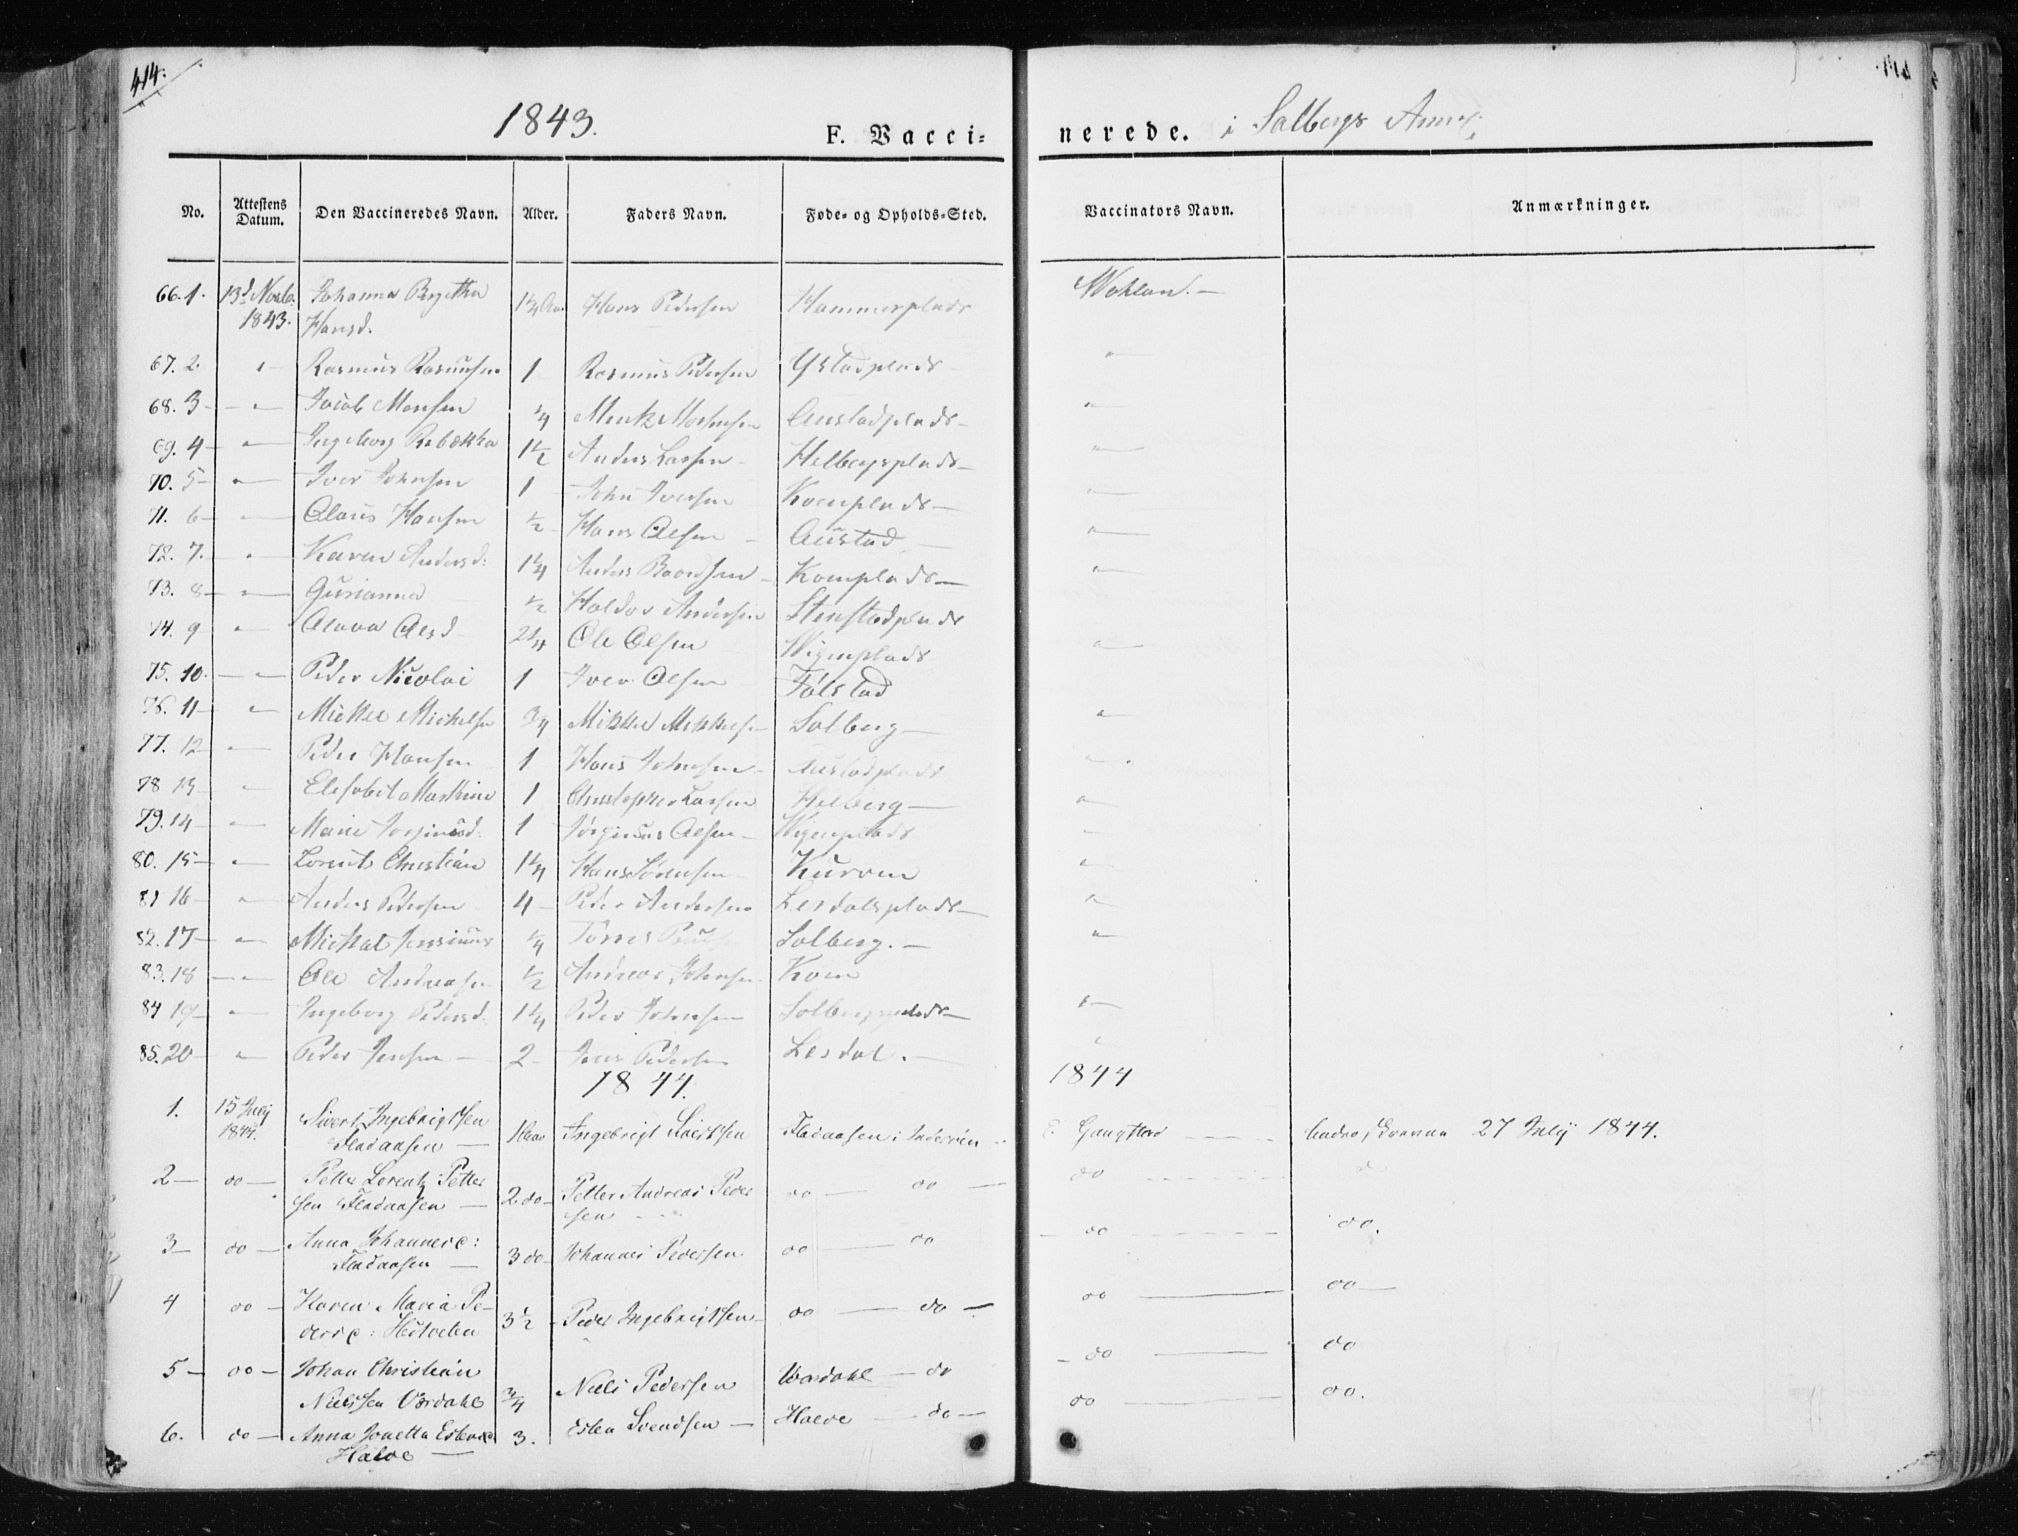 414.
1843.
F. Vacci-
nerede. i Salbergs Annex.
No. Attestens Datum. Den Vaccineredes Navn. Alder. Faders Navn. Føde- og Opholds-Sted. Vaccinators Navn. Anmærkninger.
66. 1. 13d Novb. 1843. Johanna Hansd. 1¼ Aar Hans Pedersen Hammerplads
67. 2. " Rasmus Rasmusen 1 Rasmus Pedersen Ystadplads "
68. 3 " Jacob Monsen ¼ Austadplads "
69. 4 " Ingeborg Rebækka 1½ Anders Larsen Helbergsplads "
70. 5 " Iver Johnsen 1 John Iversen Koenplads "
71. 6 " Olaus Hansen ½ Hans Olsen Austad "
72. 7. " Karen Andersd: 1¼ Anders Baardsen Koenplads "
73. 8 " Gurianna ½ Haldor Andersen Stenstadplads
74. 9 " Olava Olsd 2¼ Ole Olsen Wigenplads "
75. 10. " Peder Nicolai 1 Iver Olsen Tølstad
76. 11 " Mickel Mickelsen ¾ Mikkel Mikkelsen Salberg "
77. 12 " Peder Hansen 1 Hans Johnsen Austadplads "
78 13 " Elisabet Marthine 1 Christopher Larsen Helberg "
79. 14 " Marie Jørginusd: 1 Jørginus Olsen Wigenplads "
80. 15 " Lorents Christian 1¼ Hans Sørensen Kurven "
81 16 " Anders Pedersen 4 Peder Andersen Lesdalsplads "
82. 17 " Mickal Jensinius ¼ Salberg. "
83. 18 " Ole Andreasen ½ Andreas Johnsen Koen
84 19 " Ingeborg Pedersd. 1¼ Peder Johnsen Salbergsplads "
85. 20 " Peder Jensen 2 Jens Pedersen Lesdal. "
1844. 1844
1. 15 July 1844. Sivert Ingebrigtsen Fladaasen Ingebrigt Sivertsen Fladaasen i Inderøen 27 July 1844.
2 do Petter Lorentz Pettersen Fladaasen 2 do Petter Andreas Pedersen do do do
3 do Anna Johannesd: Fladaasen 3 do Johannes Pedersen do do do do.
4 do Karen Maria Pedersd: 3½ Peder Ingebrigtsen do do do do
5 do Johan Christian Nielssen Værdahl ¾ Niels Pedersen Værdahl do do do
6. do Anna Jonetta Halve 3. Esten Svendsen Halve do do do.